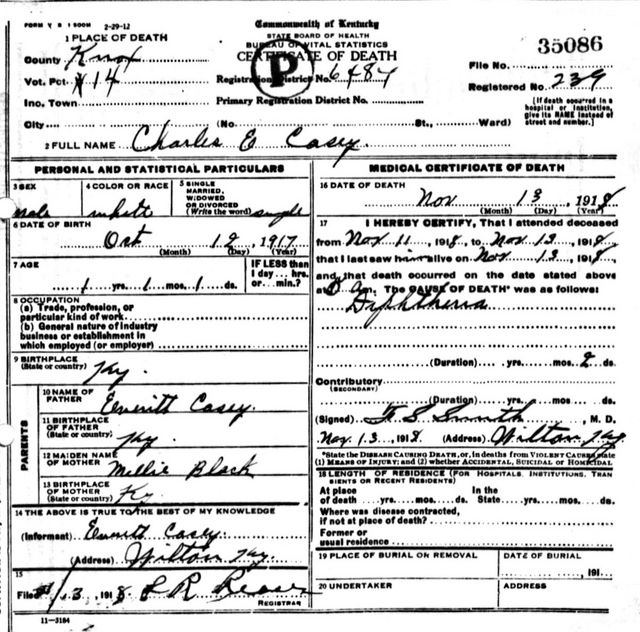 FORM V. S. 1 500M 2-29-12
Commonwealth of Kentucky
STATE BOARD OF HEALTH
BUREAU OF VITAL STATISTICS
CERTIFICATE OF DEATH
P
1 PLACE OF DEATH
County Knox
Vot. Pct. #14
Ino. Town
City (No. St., Ward)
Registration District No. 6487
Primary Registration District No.
35086
File No.
Registered No. 239
[If death occurred in a hospital or institution, give its NAME instead of street and number.]
2 FULL NAME Charles E Casey
PERSONAL AND STATISTICAL PARTICULARS
3 SEX male
4 COLOR OR RACE white
5 SINGLE MARRIED, WIDOWED OR DIVORCED (Write the word) single
6 DATE OF BIRTH
Oct 12, 1917
(Month) (Day) (Year)
7 AGE
1 yrs. 1 mos. 1 ds.
IF LESS than 1 day... hrs. or... min.?
8 OCCUPATION
(a) Trade, profession, or particular kind of work
(b) General nature of industry business or establishment in which employed (or employer)
9 BIRTHPLACE
(State or country) Ky.
PARENTS
10 NAME OF FATHER Everitt Casey.
11 BIRTHPLACE OF FATHER
(State or country) Ky.
12 MAIDEN NAME OF MOTHER Millie Black
13 BIRTHPLACE OF MOTHER
(State or country) Ky
14 THE ABOVE IS TRUE TO THE BEST OF MY KNOWLEDGE
(Informant) Everitt Casey
(Address) Wilton Ky.
15
Filed 11/13 1918 L R
REGISTRAR
11-3184
MEDICAL CERTIFICATE OF DEATH
16 DATE OF DEATH
Nov 13, 1918
(Month) (Day) (Year)
17 I HEREBY CERTIFY, That I attended deceased
from Nov 11, 1918, to Nov 13, 1918,
that I last saw him alive on Nov 13, 1918,
and that death occurred on the date stated above
at am. The CAUSE OF DEATH* was as follows:
Diphtheria
(Duration) yrs. mos. 2 ds.
Contributory
(SECONDARY)
(Duration) yrs. mos. ds.
(Signed) F S Smith, M. D.
Nov 13, 1918 (Address) Wilton Ky.
*State the DISEASE CAUSING DEATH, or, in deaths from VIOLENT CAUSES, state
(1) MEANS OF INJURY; and (2) whether ACCIDENTAL, SUICIDAL or HOMICIDAL
18 LENGTH OF RESIDENCE (FOR HOSPITALS, INSTITUTIONS, TRANSIENTS OR RECENT RESIDENTS)
At place of death yrs. mos. ds. In the State yrs. mos. ds.
Where was disease contracted, if not at place of death?
Former or usual residence
19 PLACE OF BURIAL OR REMOVAL
DATE OF BURIAL
191
20 UNDERTAKER
ADDRESS